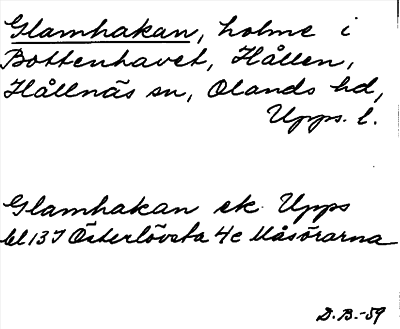 Glamhakan, holme i
Bottenhavet, Hållen,
Hållnäs sn, Olands hd,
Upps. l.
Glamhakan ek Upps
bl 13 I Österlövsta 4e Måsörarna
D.B.-59